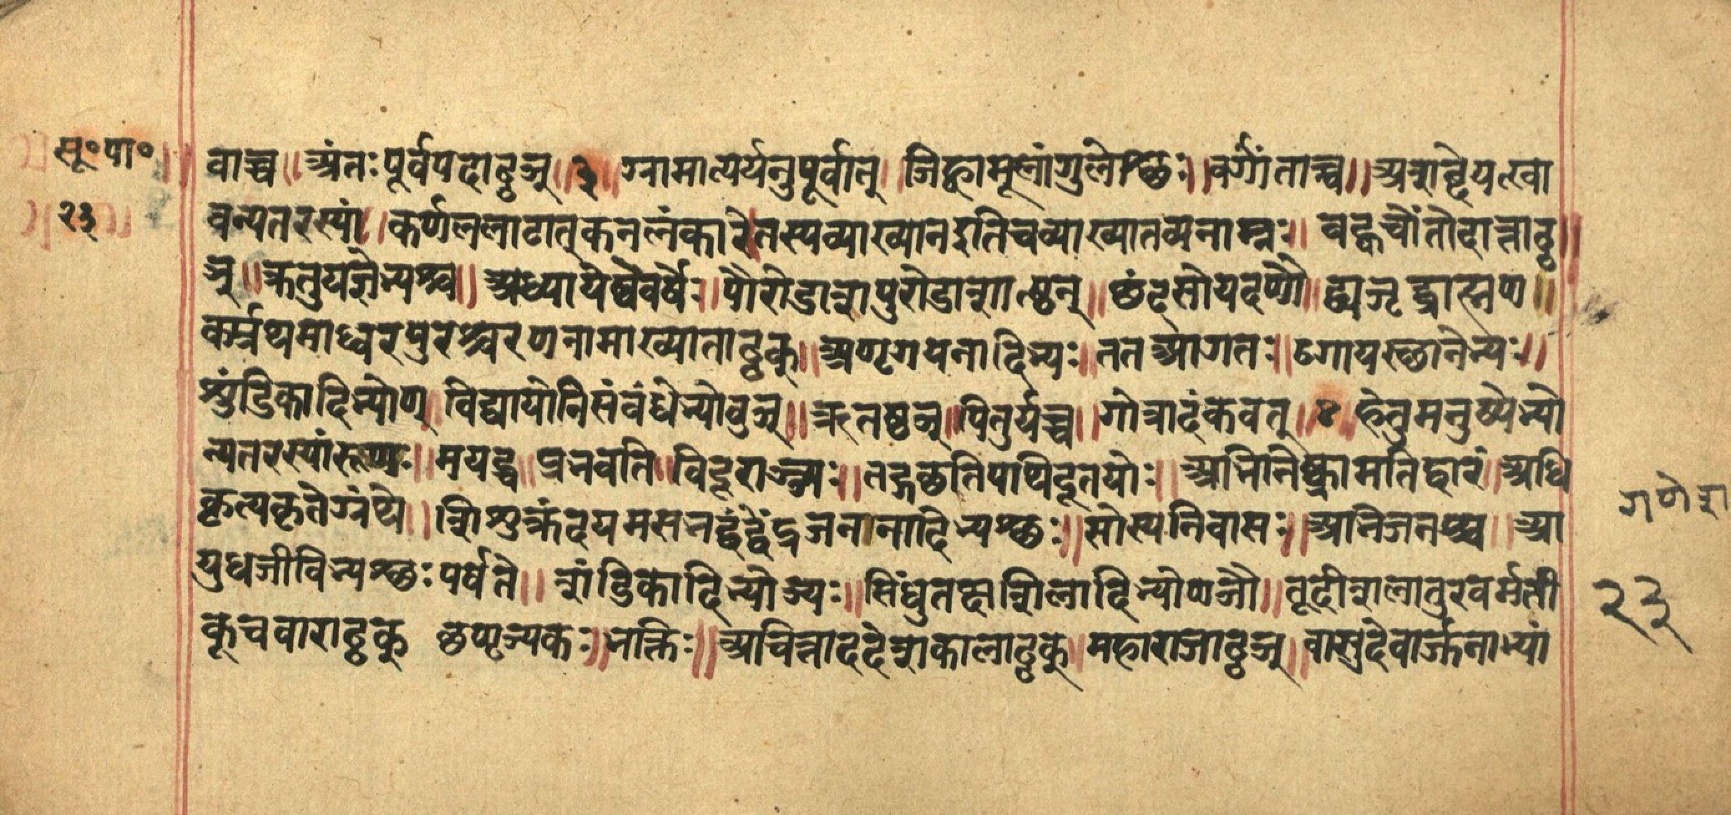 सू॰पा॰
२३
वाच्च ॥ अंतः पूर्वपदाट्ठञ् ॥ ३ ॥ ग्रामात्पर्यनुपूर्वात् ॥ जिह्वामूलांगुलेश्छः ॥ वर्गांताच्च ॥ अशब्देयत्खा
वन्यतरस्यां ॥ कर्णललाटात्कनलंकारे तस्यव्याख्यानइतिचव्याख्यातव्यनाम्नः ॥ बह्वचोंतोदात्ताट्ठ
ञ् ॥ ऋतुयज्ञेभ्यश्च ॥ अध्यायेष्वेवर्षेः ॥ पौरोडाशपुरोडाशात्ष्ठन् ॥ छंदसोयदणौ ॥ द्व्यजृद्ब्राह्मण
कर्प्रथमाध्वरपुरश्चरणनामाख्याताट्ठक् ॥ अणृगयनादिभ्यः ॥ तत आगतः ॥ ठगायस्छानेभ्यः ॥
शुंडिकादिभ्योण् विद्यायोनिसंबंधेभ्योवुञ् ॥ ऋतष्ठञ् ॥ पितुर्यच्च ॥ गोत्रादंकवत् ॥ ४ हेतुमनुष्येभ्यो
न्यतरस्यांरूप्यः ॥ मयट्च ॥ प्रभवति ॥ विदूराञ्ञ्यः ॥ तद्गछतिपथिदूतयोः ॥ अभिनिष्क्रामतिद्वारं ॥ अधि
कृत्यकृतेग्रंथे ॥ शिशुक्रंदयमसभद्वंद्वेंद्रजननादिभ्यश्छः ॥ सोस्यनिवासः ॥ अभिजनश्च ॥ आ
युधजीविभ्यश्छः पर्वते ॥ शंडिकादिभ्योञ्यः ॥ सिंधुतक्षशिलादिभ्योणञौ ॥ तूदीशलातुरवर्मती
कूचवाराट्ठक् छण्ढञ्यकः ॥ भक्तिः ॥ अचित्ताददेशकालाट्ठक् ॥ महाराजाट्ठञ् ॥ वासुदेवार्जुनाभ्यां
गणेश
२३